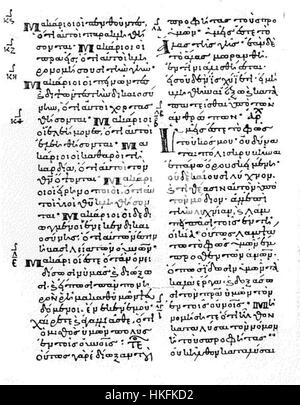 Μακάριοι οἱ πενθοῦντες,
ὅτι αὐτοὶ παρακληθή
σονται· Μακάριοι οἱ
πραεῖς, ὅτι αὐτοὶ κλη
ρονομήσουσι τὴν γῆν·
Μακάριοι οἱ πεινῶντες
καὶ διψῶντες τὴν δικαιοσύ
νην, ὅτι αὐτοὶ χορτασ
θήσονται· Μακάριοι οἱ
ἐλεήμονες, ὅτι αὐτοὶ ἐλε
ηθήσονται· Μα
κάριοι οἱ καθαροὶ τῇ
καρδίᾳ, ὅτι αὐτοὶ τὸν
θν ὄψονται· Μακάριοι
οἱ εἰρηνοποιοί, ὅτι αὐτοὶ
υἱοὶ θυ κληθήσον
ται· Μακάριοι οἱ δεδι
ωγμένοι ἕνεκεν δικαι
οσύνης, ὅτι αὐτῶν ἐστιν ἡ
βασιλεία τῶν οὐρανῶν·
Μακάριοί ἐστε ὅταν ὀνει
δίσωσιν ὑμᾶς καὶ διώξω
σι, καὶ εἴπωσι πᾶν πονη
ρὸν ῥῆμα καθ' ὑμῶν ψευ
δόμενοι ἕνεκεν ἐμοῦ·
χαίρετε καὶ ἀγαλλιᾶσθε, ὅτι
ὁ μισθὸς ὑμῶν πολὺς
ἐν τοῖς οὐνοῖς·
οὕτως γὰρ ἐδίωξαν τοὺς
προφήτας τοὺς πρὸ
ὑμῶν· ὑμεῖς ἐστε τὸ
ἅλας τῆς γῆς· ἐὰν δὲ
τὸ ἅλας μωρανθῇ
ἐν τίνι ἁλισθήσεται·
εἰς οὐδὲν ἰσχύει ἔτι, εἰ
μὴ βληθῆναι ἔξω καὶ κα
ταπατεῖσθαι ὑπὸ τῶν
ἀνθρώπων·
Ὑμεῖς ἐστε τὸ φῶς
τοῦ κόσμου· οὐ δύνα
ται πόλις κρυβῆναι
ἐπάνω ὄρους κειμένη·
οὐδὲ καίουσι λύχνον
καὶ τιθέασιν αὐτὸν ὑπὸ τὸν
μόδιον· ἀλλ' ἐπὶ
τὴν λυχνίαν, καὶ λάμ
πει πᾶσι τοῖς ἐν τῇ οἰ
κίᾳ· οὕτως λαμψάτω
τὸ φῶς ὑμῶν ἔμ
προσθεν τῶν ἀνων
ὅπως ἴδωσιν ὑμῶν τὰ
καλὰ ἔργα· καὶ δοξάσωσι
τὸν πρα ὑμῶν τὸν
ἐν τοῖς οὐνοῖς· Μὴ νο
μίσητε ὅτι ἦλθον
καταλῦσαι τὸν νόμον
ἢ τοὺς προφήτας·
οὐκ ἦλθον καταλῦσαι
alamy
HKFKD2